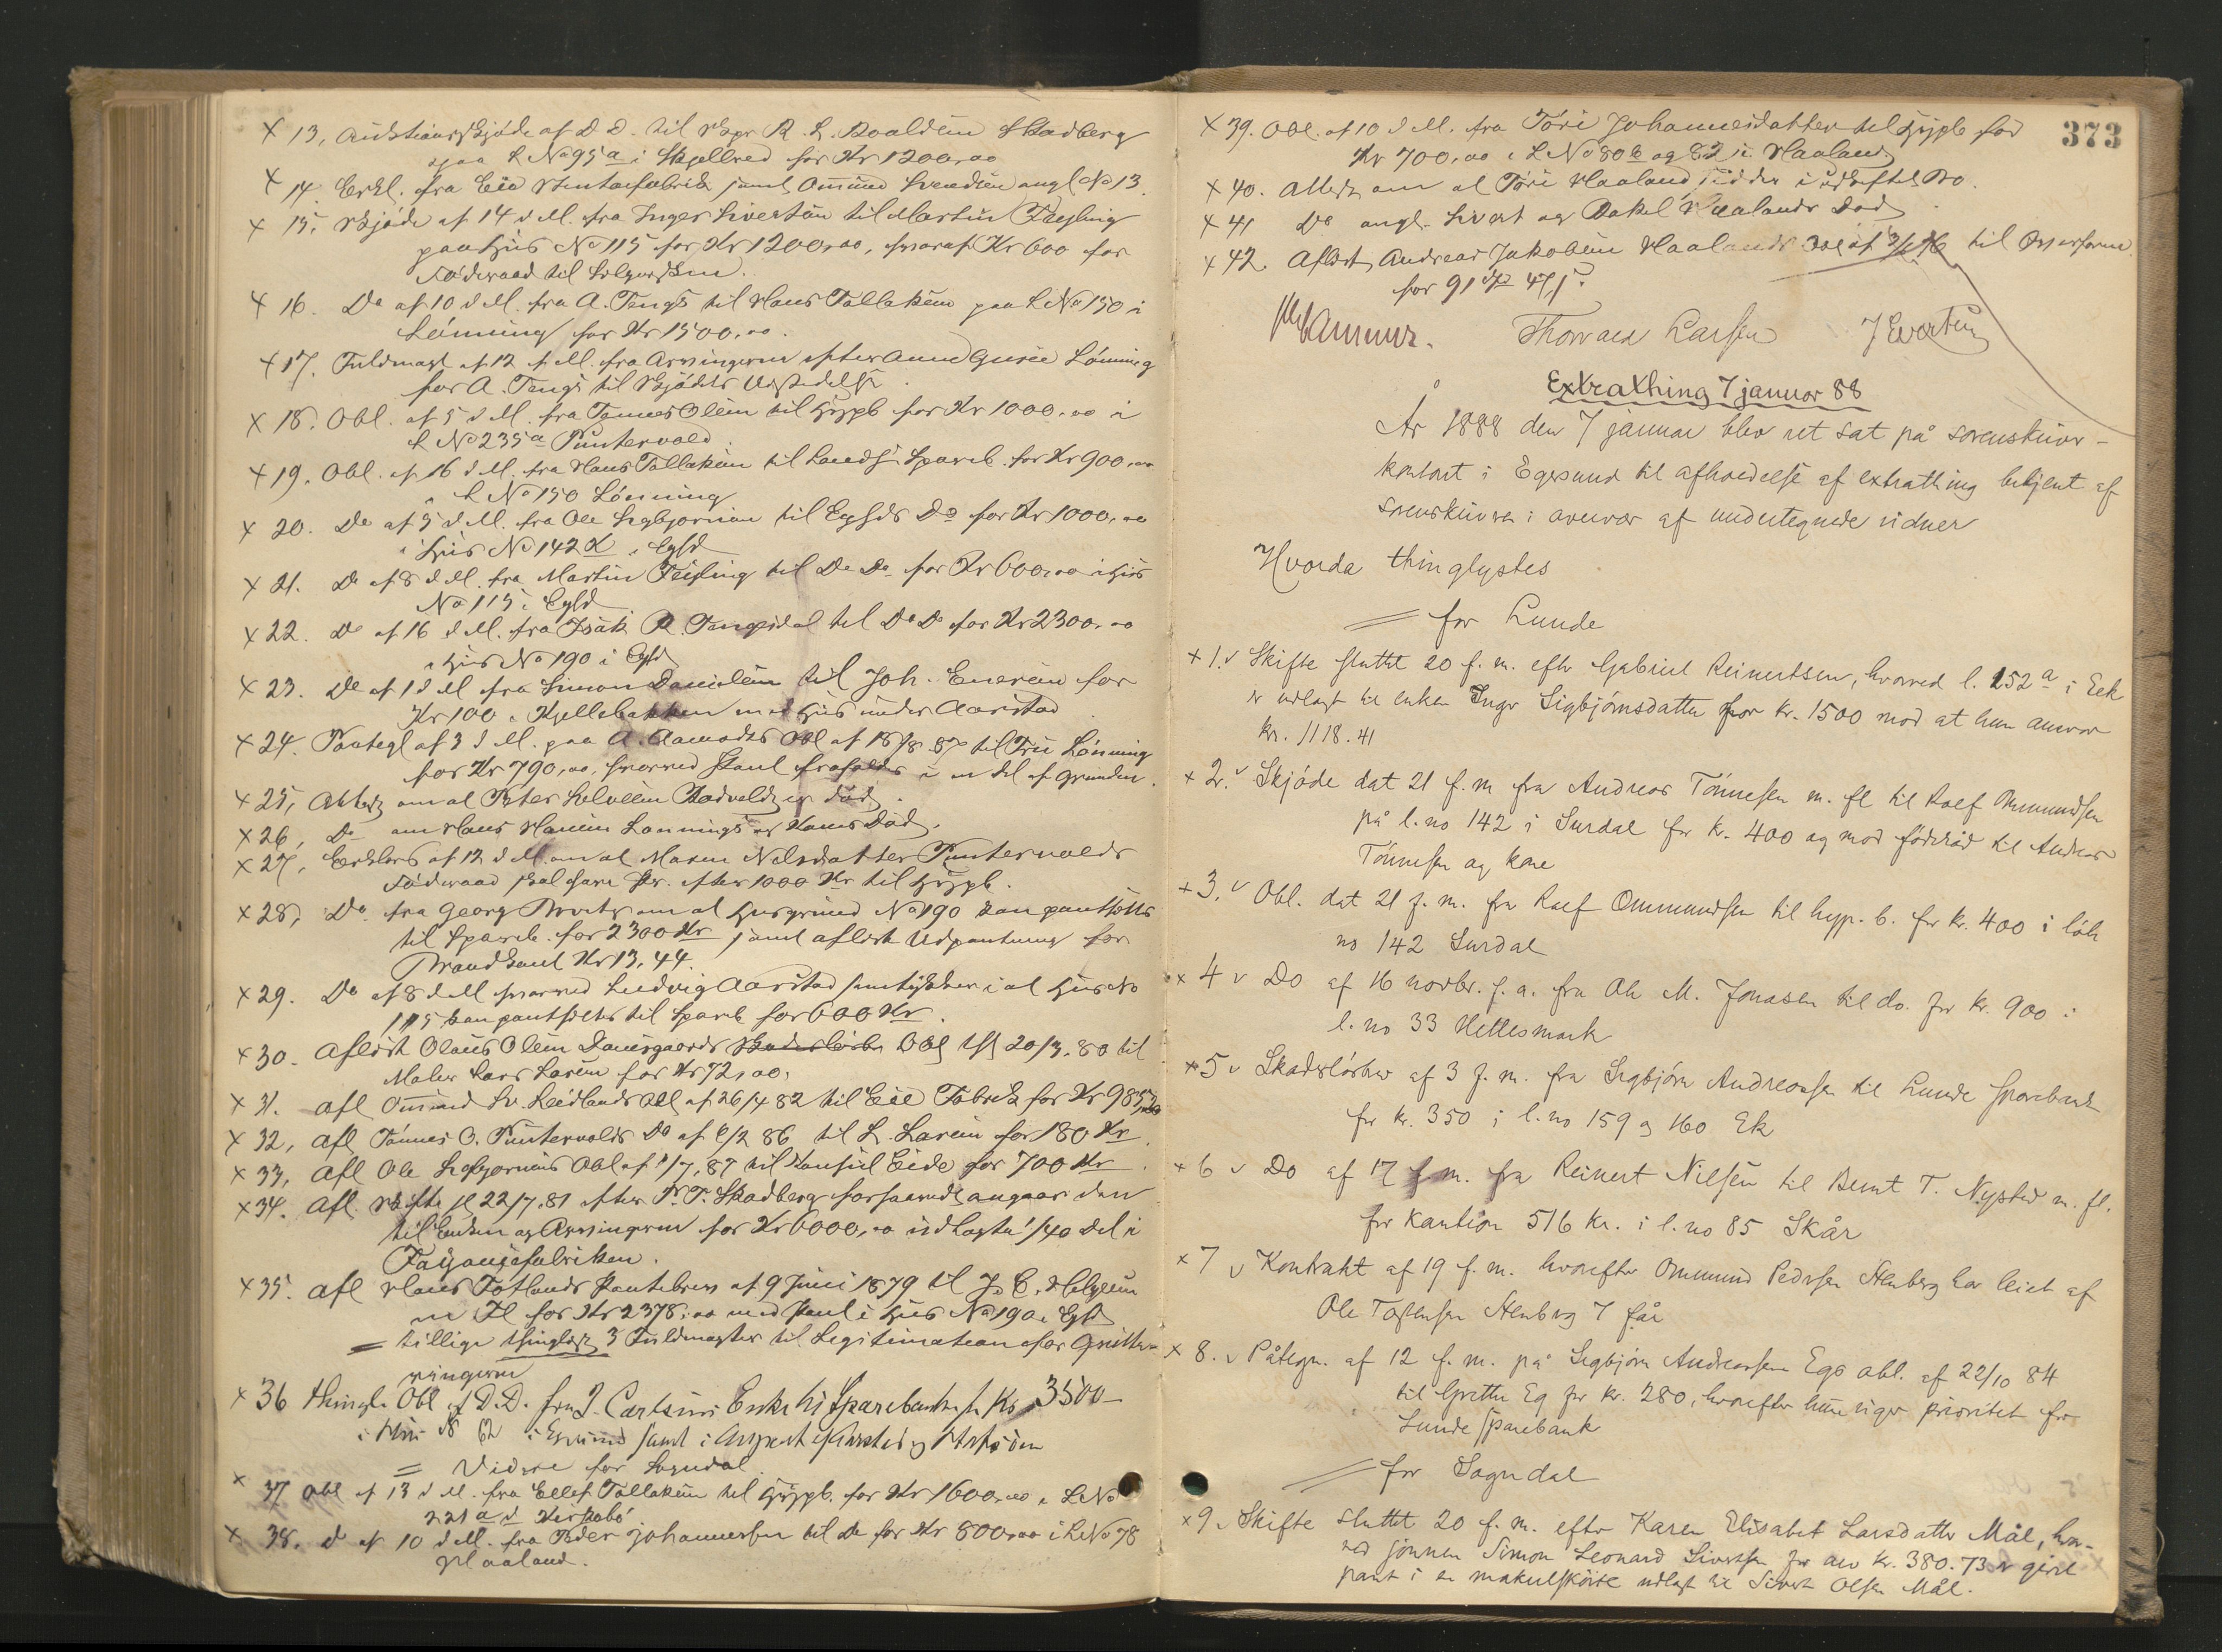 × 13, Auktionsskjøde af D D. til Skpr R. L. Roaldsen Skadberg
paa L No 95a i Skjellred for Kr 1200,00
× 14. Erkl. fra Eie Stentøifabrik samt Omund Svendsen angl No 13.
× 15, Skjøde af 14 d M. fra Inger Sivertsen til Martin Feyling
paa Huus No 115 for Kr 1200,00, hvoraf Kr 600 for
Föderaad til Selgersken.
× 16. Do af 10 d M. fra A. Tengs til Hans Tollaksen paa L No 150 i
Lönning for Kr 1500.00.
× 17. Fuldmagt af 12 f M. fra Arvingerne efter Anne Gurie Lönning
for A. Tengs til Skjödets Udstedelse
× 18. Obl. af 5 d M. fra Tønnes Olsen til Hypb for Kr 1000.00 i
L No 235a Puntervold.
× 19. Obl. af 16 d M. fra Hans Tollaksen til Lands Spareb. for Kr 900,00
i L No 150 Lönning
× 20. Do af 5 d M. fra Ole Segbjørnsen til Egsds Do for Kr 1000,00
i Huus No 142 i Egsd
× 21. Do af 8 d M. fra Martin Feyling til Do Do for Kr 600,00 i Huus
No 115 i Egsd
× 22. Do af 16 d M. fra Isak R. Tengesdal til Do Do for Kr 2300,00
i Huus No 190 i Egsd
× 23. Do af 1 d M fra Simon Danielsen til Joh. Enersen for
Kr 100 i Kjellebakken med Huus under Aarstad
× 24. Paategl af 3 d M. paa A. Aamodts Obl af 18/8 87 til Fru Lönning
for Kr 790,00, hvorved Pant frafaldes i en del af Grunden.
× 25, Attest om at Peter Salvesen Rodvelt er död.
× 26, Do om Hans Hansen Lønnings og Kones Död.
× 27, Erklæring af 12 d M. om at Maren Nelsdatter Puntervolds
Föderaad skal have Pr. efter 1000 Kr til Hypb.
× 28, Do fra Georg Bruchs om at Husgrund No 190 kan pantsættes
til Spareb. for 2300 Kr samt aflöst Udpantning for
Brandkont Kr 13.44.
× 29. Do af 8 d M hvorved Ludvig Aarstad samtykker i at Huus No
115 kan pantsættes til Spareb for 600 Kr.
× 30. Aflöst Olaus Olsen Damsgaards Skadeslösbr Obl tgl 20/3.80 til
Maler Lars Larsen for Kr 72,00.
× 31. Afl Omund Sv. Leidlands Obl af 26/4 82 til Eie Fabrik for Kr 985,
× 32, Afl Tönnes O. Puntervolds Do af 6/2 86 til L. Larsen for 180 Kr.
× 33, Afl Ole Segbjørnsens Obl af 1/7.87 til Konsul Eide for 700 Kr.
× 34. Afl. Skifte sl 22/7.81 efter P. T. Skadberg forsaavidt angaar den
til Enken og Arvingerne for Kr 6000,00 udlagte 1/40 Del i
Fayancefabriken.
× 35. Afl Hans Fotlands Pantebrev af 9 Juni 1879 til J. C. Helgesen
m Fl for Kr 2378.00 med Pant i Huus No 190 i Egsd
= tillige thinglest 3 Fuldmagter til Legitimation for Qvitte-
ringerne
× 36 thingl. Obl af D.D. fra J. Carlsens Enke til Sparebanken for Kr 3500—
i Hus No 62 i Egersund samt i
= Videre for Sogndal.
× 37 Obl af 13 d M. fra Ellef Tollaksen til Hypb. for Kr 1600,00 i L No
221 a d Kirkebø
× 38. d af 10 d M. fra Peder Johannessen til Do for Kr 800,00 i L No 78
Haaland.
373
× 39. Obl. af 10 d M. fra Töri Johannesdatter til Hypb for
Kr 700,00 i L No 80 b og 82 i Haaland
× 40. Attest om at Töri Haaland sidder i uskiftet Bo.
× 41 Do angl. Sivert og Rakel Haalands Död
× 42. Aflöst Andreas Jakobsen Haalands Obl af 3/6 76 til
for 91 Sp 47 s
Thorvald Larsen J Evertsen
Extrathing 7 januar 88
År 1888 den 7 januar blev ret sat på sorenskriver-
kontoret i Egersund til afholdelse af extrathing betjent af
sorenskriveren i overvær af undertegnede vidner
Hvorda thinglystes
= for Lunde
× 1. v Skifte sluttet 20 f. m. efter Gabriel Reinertsen, hvorved l. 252a i Eek
er udlagt til enken Inger Sigbjörnsdatter for kr. 1500 mod at hun ansvarer
kr. 1118.41
× 2. v Skjöde dat 21 f. m fra Andreas Tönnesen m. fl til Roef Ommundsen
på l. no 142 i Surdal for kr. 400 og mod föderåd til Andreas
Tönnesen og kone
× 3. v Obl. dat 21 f. m. fra Roef Ommundsen til hyp. b. for kr. 400 i löb
no 142 Surdal
× 4 v Do af 16 novbr. f. a. fra Ole M. Jonasen til do. for kr. 900 i
l. no 33 Hettesmark
× 5 v Skadeslösbrev af 3 f. m. fra Segbjörn Andreassen til Lunde sparebank
for kr. 350 i l. no 159 og 160 Ek
× 6 v Do af 17 f. m. fra Reinert Nilsen til Bernt T. Nysted m. fl.
for kaution 516 kr. i l. no 85 Skår
× 7 v Kontrakt af 19 f. m. hvorefter Ommund Pedersen Stenberg har leiet af
Ole Tostensen Stenberg 7 får
× 8. v Påtegn. af 12 f. m. på Segbjörn Andreassens Eges obl. af 22/10 84
til Grethe Eg for kr. 280, hvorefter hun viger prioritet for
Lunde sparebank
= for Sogndal
× 9. v Skifte sluttet 20 f. m. efter Karen Elisabet Larsdatter Mål, hvor-
ved sönnen Simon Leonard Sivertsen for arv kr. 380.73 er givet
pant i en makrelsköite udlagt til Sivert Olsen Mål.